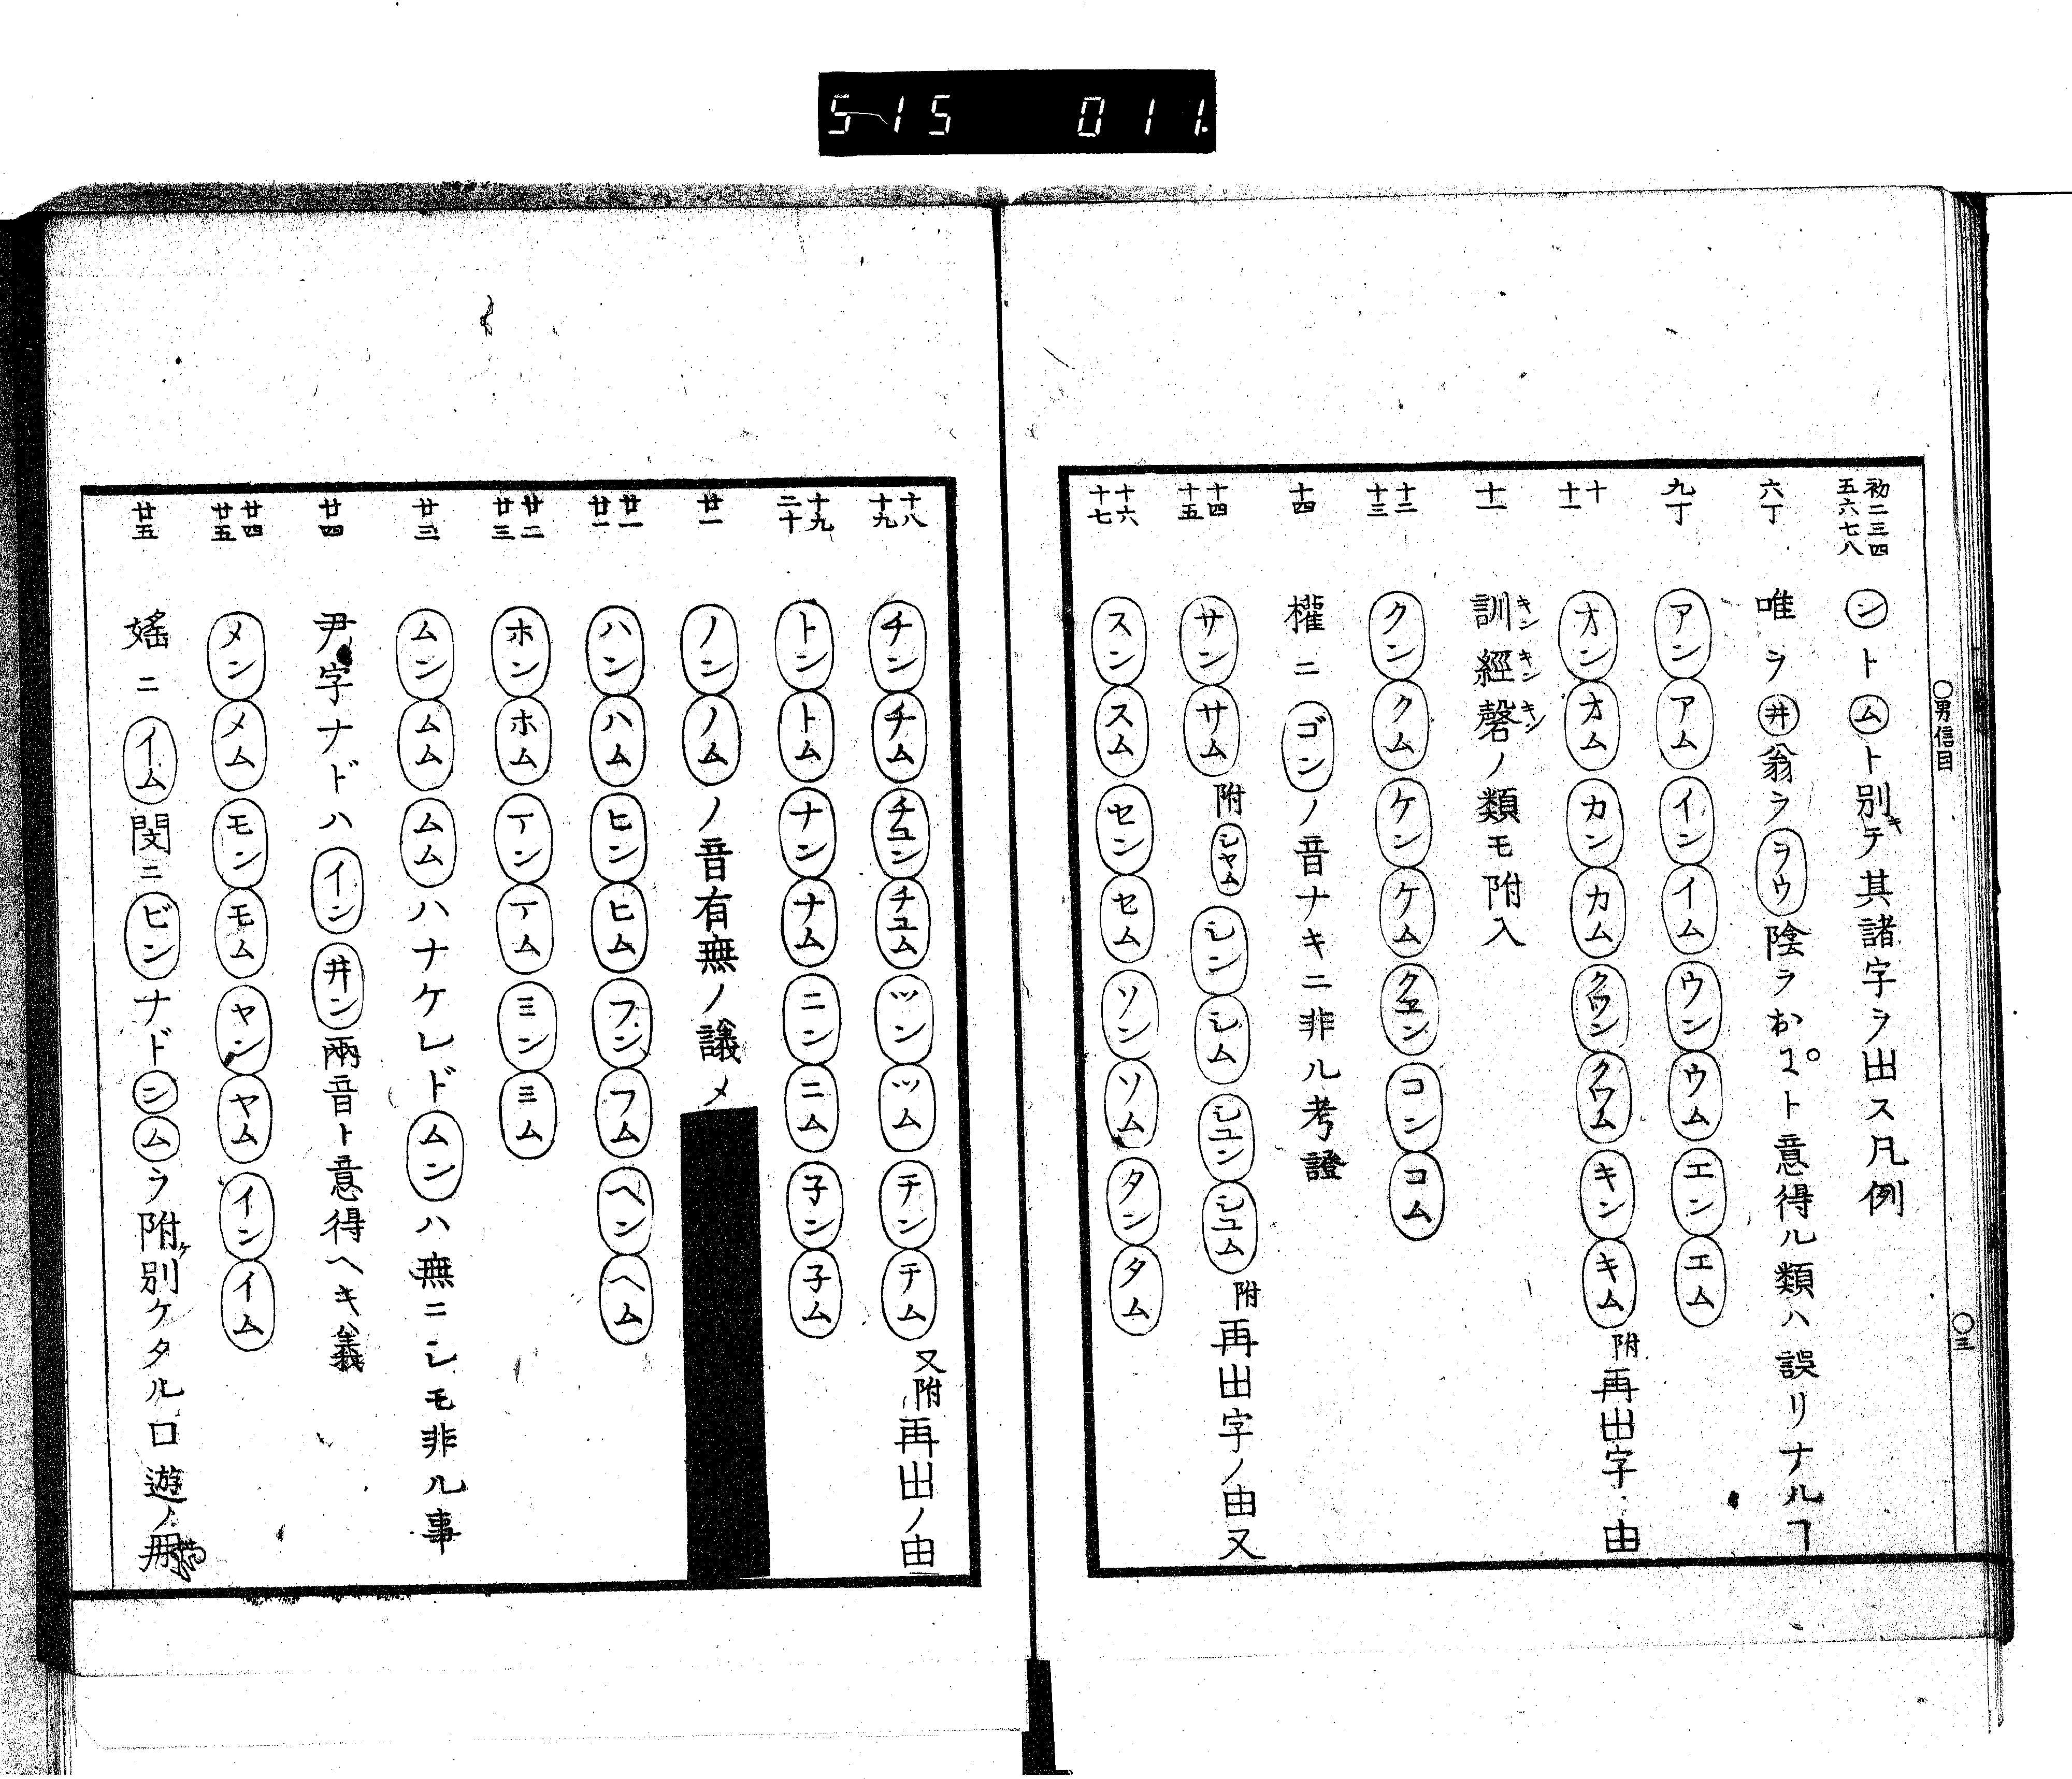 515 011.
○男信目
○三
初二三四
五六七八
ントムト別キテ其諸字ヲ出ス凡例
六丁
唯ヲ井翁ヲラウ陰ヲおヿ゜ト意得ル類ハ誤リナルヿ
九丁
アンアムインイムウンウムエンエム
十
十一
オンオムカンカムクワンクワムキンキム附再出字ノ由
十一
訓キン經キン磬キンノ類モ附入
十二
十三
クンクムケンケムクヱンコンコム
十四
權ニゴンノ音ナキニ非ル考證
十四
十五
サンサム附シヤムシンシムシユンシユム附再出字ノ由又
十六
十七
スンスムセンセムソンソムタンタム
十八
十九
チンチムチユンチユムツンツムテンテム又附再出ノ由
十九
二十
トントムナンナムニンニム子ン子ム
廿一
ノンノムノ音有無ノ議〆
廿一
廿二
ハンハムヒンヒムフンフムヘンヘム
廿二
廿三
ホンホムマンマムミンミム
廿三
ムンムムムムハナケレドムンハ無ニシモ非ル事
廿四
尹字ナドハイン井ン兩音ト意得ヘキ議
廿四
廿五
メンメムモンモムヤンヤムインイム
廿五
媱ニイム閔ニビンナドンムヲ附ケ別ケタル口遊ノ冊